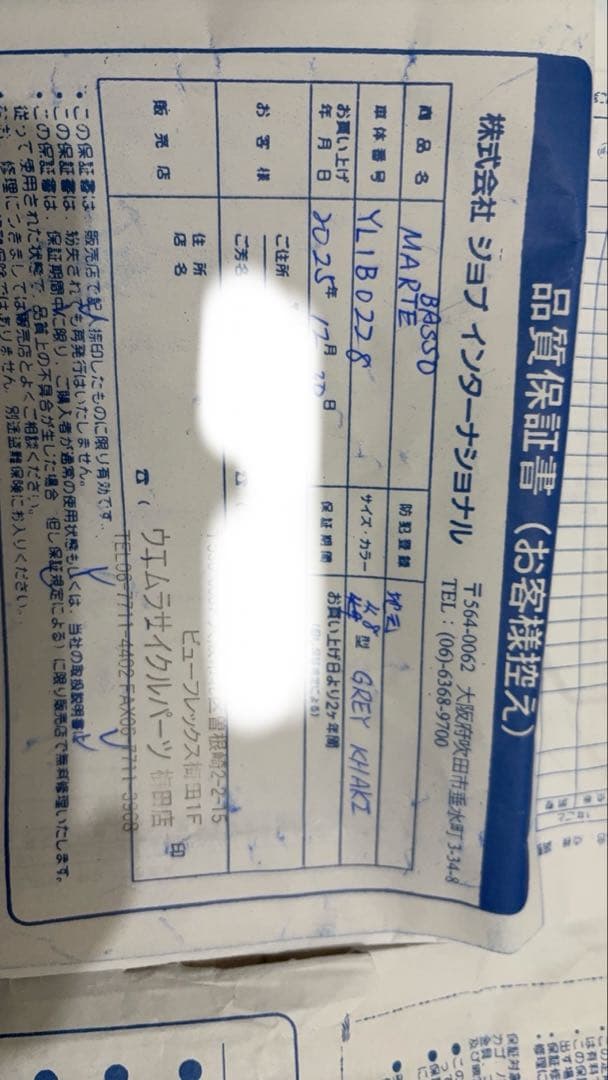 品質保証書(お客様控え)
株式会社 ジョブ インターナショナル
〒564-0062 大阪府吹田市垂水町3-34-8
TEL:(06-6368-9700
商品名
BASSO
MARTE
防犯登録
車体番号
YL1B0228
サイズ・カラー
48型 GREY KHAKI
お買い上げ
年月日
2025年 12月 日
保証期間
お買い上げ日より2ヶ年間
お客様
ご住所
ご芳名
☎
販売店
住所
店名
曽根崎2-2-15
ビューフレックス梅田1F
ウエムラサイクルパーツ 梅田店
印
☎(
TEL06-7711-4402 FAX06-7711-3968
• この保証書は、販売店で記入捺印したものに限り有効です。
• この保証書は、紛失されても再発行はいたしません。
• この保証書は、保証期間中に限り、ご購入者が通常の使用状態もしくは、当社の取扱説明書に
従って使用された状態で、品質上の不具合が生じた場合、但し保証規定による)に限り販売店で無料修理いたします。
修理につきましては販売店とよくご相談ください。
ではありません。別途盗難保険にお入りください。
保証対象